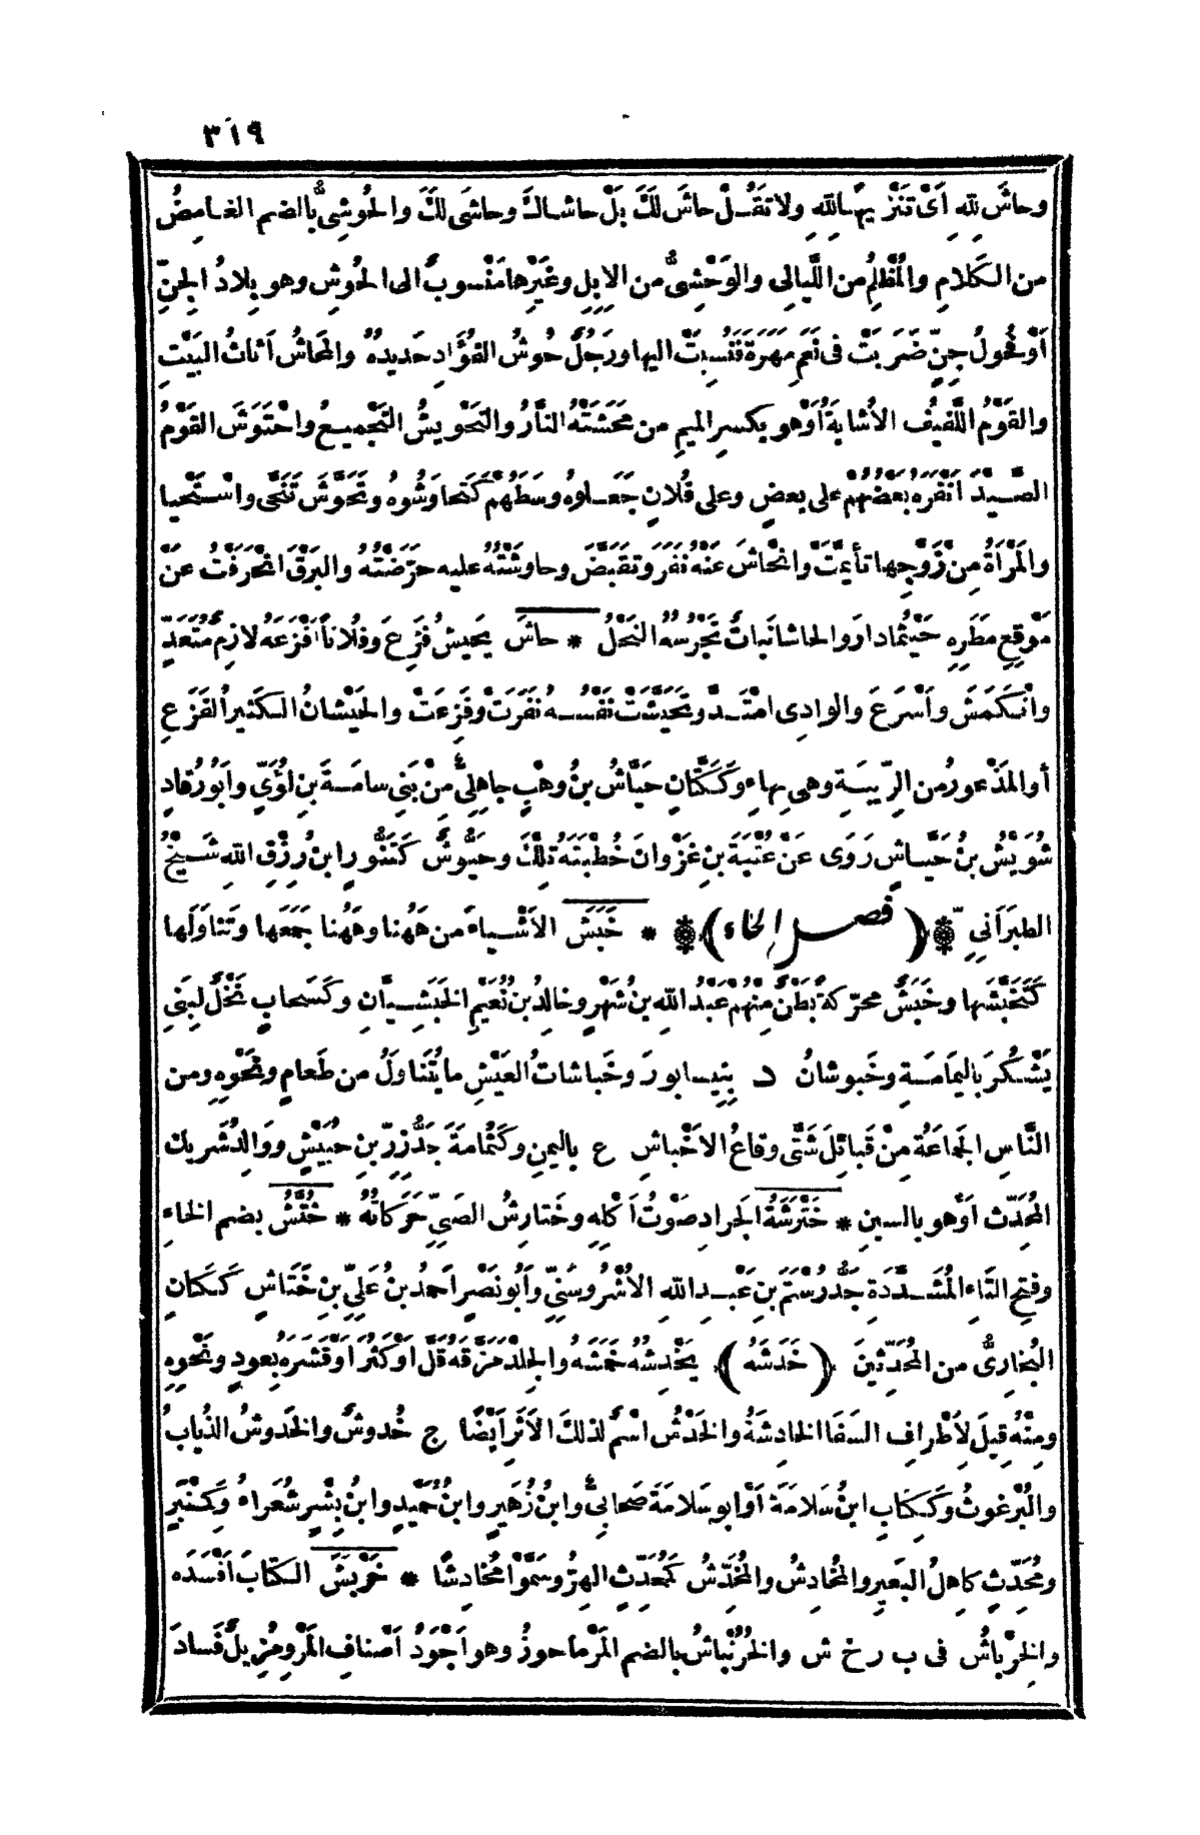 ٣١٩
وحاشَ لِلّهِ أَىْ تَنْزِيهًا لِلّهِ ولا تَقُلْ حاشَ لَكَ بَلْ حاشاكَ وحاشَى لَكَ والحُوشِىُّ بالضم الغامِضُ
من الكَلامِ والمُظْلِمُ من اللَّيالِى والوَحْشِىُّ من الابِلِ وغَيْرِها مَنْسوبٌ الى الحُوشِ وهو بِلادُ الجِنِّ
أَوْ فُحُولُ جِنٍّ ضَرَبَتْ فى نَعَمِ مَهْرَةَ فَنُسِبَتْ اليها ورَجُلٌ حُوشُ الفُؤَادِ حَديدُهُ والمَحاشُ أَثاثُ البَيْتِ
والقَوْمُ اللَّفيفُ الأُشابَةُ أَوْ هو بكسرِ الميمِ من مَحَشَتْهُ النَّارُ والتَحْويشُ التَجْميعُ واحْتَوَشَ القَوْمُ
الصَّيْدَ أَنْفَرَهُ بَعْضُهُمْ على بعضٍ وعلى فُلانٍ جَعَلوهُ وسَطَهُمْ كَتَحاوَشُوهُ وتَحَوَّشَ تَنَحَّى واسْتَحْيا
والمَرْأةُ مِنْ زَوْجِها تأَيَّمَتْ وانْحاشَ عَنْهُ نَفَرَ وتَقَبَّضَ وحاوَشْتُهُ عليه حَرَّضْتُهُ والبَرْقَ انْحَرَفْتُ عَنْ
مَوْقِعِ مَطَرِهِ حَيْثُمادارَ والحاشا نَباتٌ تَجْرُسُهُ النَحْلُ * حاشَ يَحِيشُ فَزِعَ وفُلاناً أَفْزَعَهُ لازِمٌ مُتَعَدٍّ
وانْكَمَشَ وأَسْرَعَ والوادِى امْتَدَّ وتَحَيَّشَتْ نَفْسُهُ نَفَرَتْ وفَزِعَتْ والحَيْشانُ الكَثيرُ الفَزَعِ
أو المَذْعورُ من الرِّيبَةِ وهى بِهاءٍ وكَكَّانٍ حَيَّاشُ بنُ وهْبٍ جاهِلِىٌّ مِنْ بَنِى سامَةَ بنِ لُؤَىٍّ وأَبُو رُقادٍ
شُوَيْشُ بنُ حَيَّاشٍ رَوَى عَنْ عُتْبَةَ بنِ غَزْوانَ خُطْبَتَهُ تِلْكَ وحَيُّوشٌ كَتَنُّورٍ ابنُ رِزْقِ اللهِ شَيْخُ
الطبَرَانِىِّ ❁(فصل الخاء)❁ * خَبَشَ الأَشْياءَ من هَهُنا وهَهُنا جَمَعَها وتَناوَلَها
كَتَخَبَّشَها وخَبَشٌ محرّكةً بَطْنٌ مِنْهُمْ عَبْدُ اللهِ بنُ شَهْرٍ وخالِدُ بنُ نُعَيْمٍ الخَبَشِيَّانِ وكَسَحابٍ نَخْلٌ لِبَنِى
يَشْكُرَ بِاليَمامَةِ وخَبوشانُ د بِنِيسابورَ وخَباشاتُ العَيْشِ ما يُتَناوَلُ من طَعامٍ ونَحْوِهِ ومن
النَّاسِ الجَماعَةُ مِنْ قَبائِلَ شَتَّى وقاعُ الأَخْباشِ ع باليمنِ وكَثُمامَةَ جَدُّ زِرِّ بنِ حُبَيْشٍ ووَالِدُ شَرِيكٍ
المُحَدِّثِ أَوْهو بالسينِ * خَتْرَشَةُ الجَرادِ صَوْتُ أَكْلِهِ وخَتارِشُ الصَبِىِّ حَرَكاتُهُ * خُتَّشٌ بضم الخاءِ
وفتح التَاءِ المُشَدَّدَةِ جَدُّ رُسْتَمَ بنِ عَبْدِ اللهِ الأُشْرُوسَنِىِّ وأَبُو نَصْرٍ أَحمدُ بنُ عَلِىِّ بنِ خَتَّاشٍ كَكَّانٍ
البُخارِىُّ من المُحَدِّثينَ (خَدَشَهُ) يَخْدِشُهُ خَمَشَهُ والجِلْدَ مَزَّقَهُ قَلَّ أَوْ كَثُرَ أَوْ قَشَرَهُ بِعودٍ ونَحْوِهِ
ومِنْهُ قِيلَ لأَطْرافِ السَفَا الخادِشَةُ والخَدْشُ اسْمٌ لذلكَ الأَثَرِ أَيضًا ج خُدوشٌ والخَدوشُ الذُبابُ
والبُرْغوثُ وكَكِتابٍ ابنُ سَلامَةَ أَوْ أبو سَلامَةَ صَحابِىٌّ وابنُ زُهَيْرٍ وابنُ حُمَيْدٍ وابنُ بِشْرٍ شُعَراءُ وكَمِنْبَرٍ
ومُحَدِّثٍ كاهِلُ البَعيرِ والمُخادِشُ والمُخَدِّشُ كَمُحَدِّثٍ الهِرُّ وسَمَّوْا مُخادِشًا * خَرْبَشَ الكتابَ أَفْسَدَه
والخِرْباشُ فى ب ر خ ش والخُرُنْباشُ بالضم المَرْماحوزُ وهو أَجْوَدُ أَصْنافِ المَرْوِ مُزِيلٌ فَسادَ